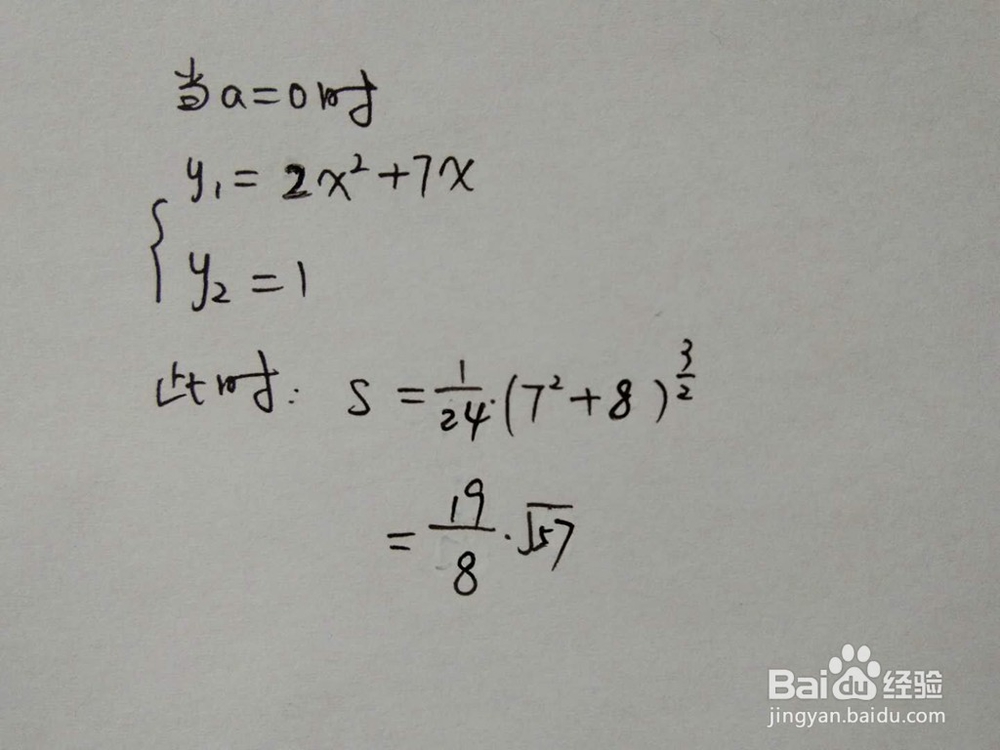 当a=0时
y₁ = 2x²+7x
y₂ = 1
此时: S = 1/24·(7²+8)^(3/2)
= 19/8·√57
Baidu 经验
jingyan.baidu.com